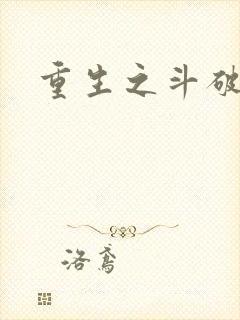 重生之斗破
洛鸢